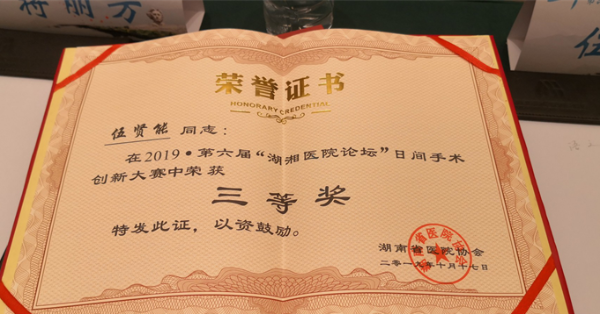 蒋丽芳
伍
荣誉证书
HONORARY CREDENTIAL
伍贤能 同志：
在2019·第六届“湖湘医院论坛”日间手术
创新大赛中荣获
三等奖
特发此证，以资鼓励。
湖南省医院协会
二〇一九年十月十七日
湖南省医院协会